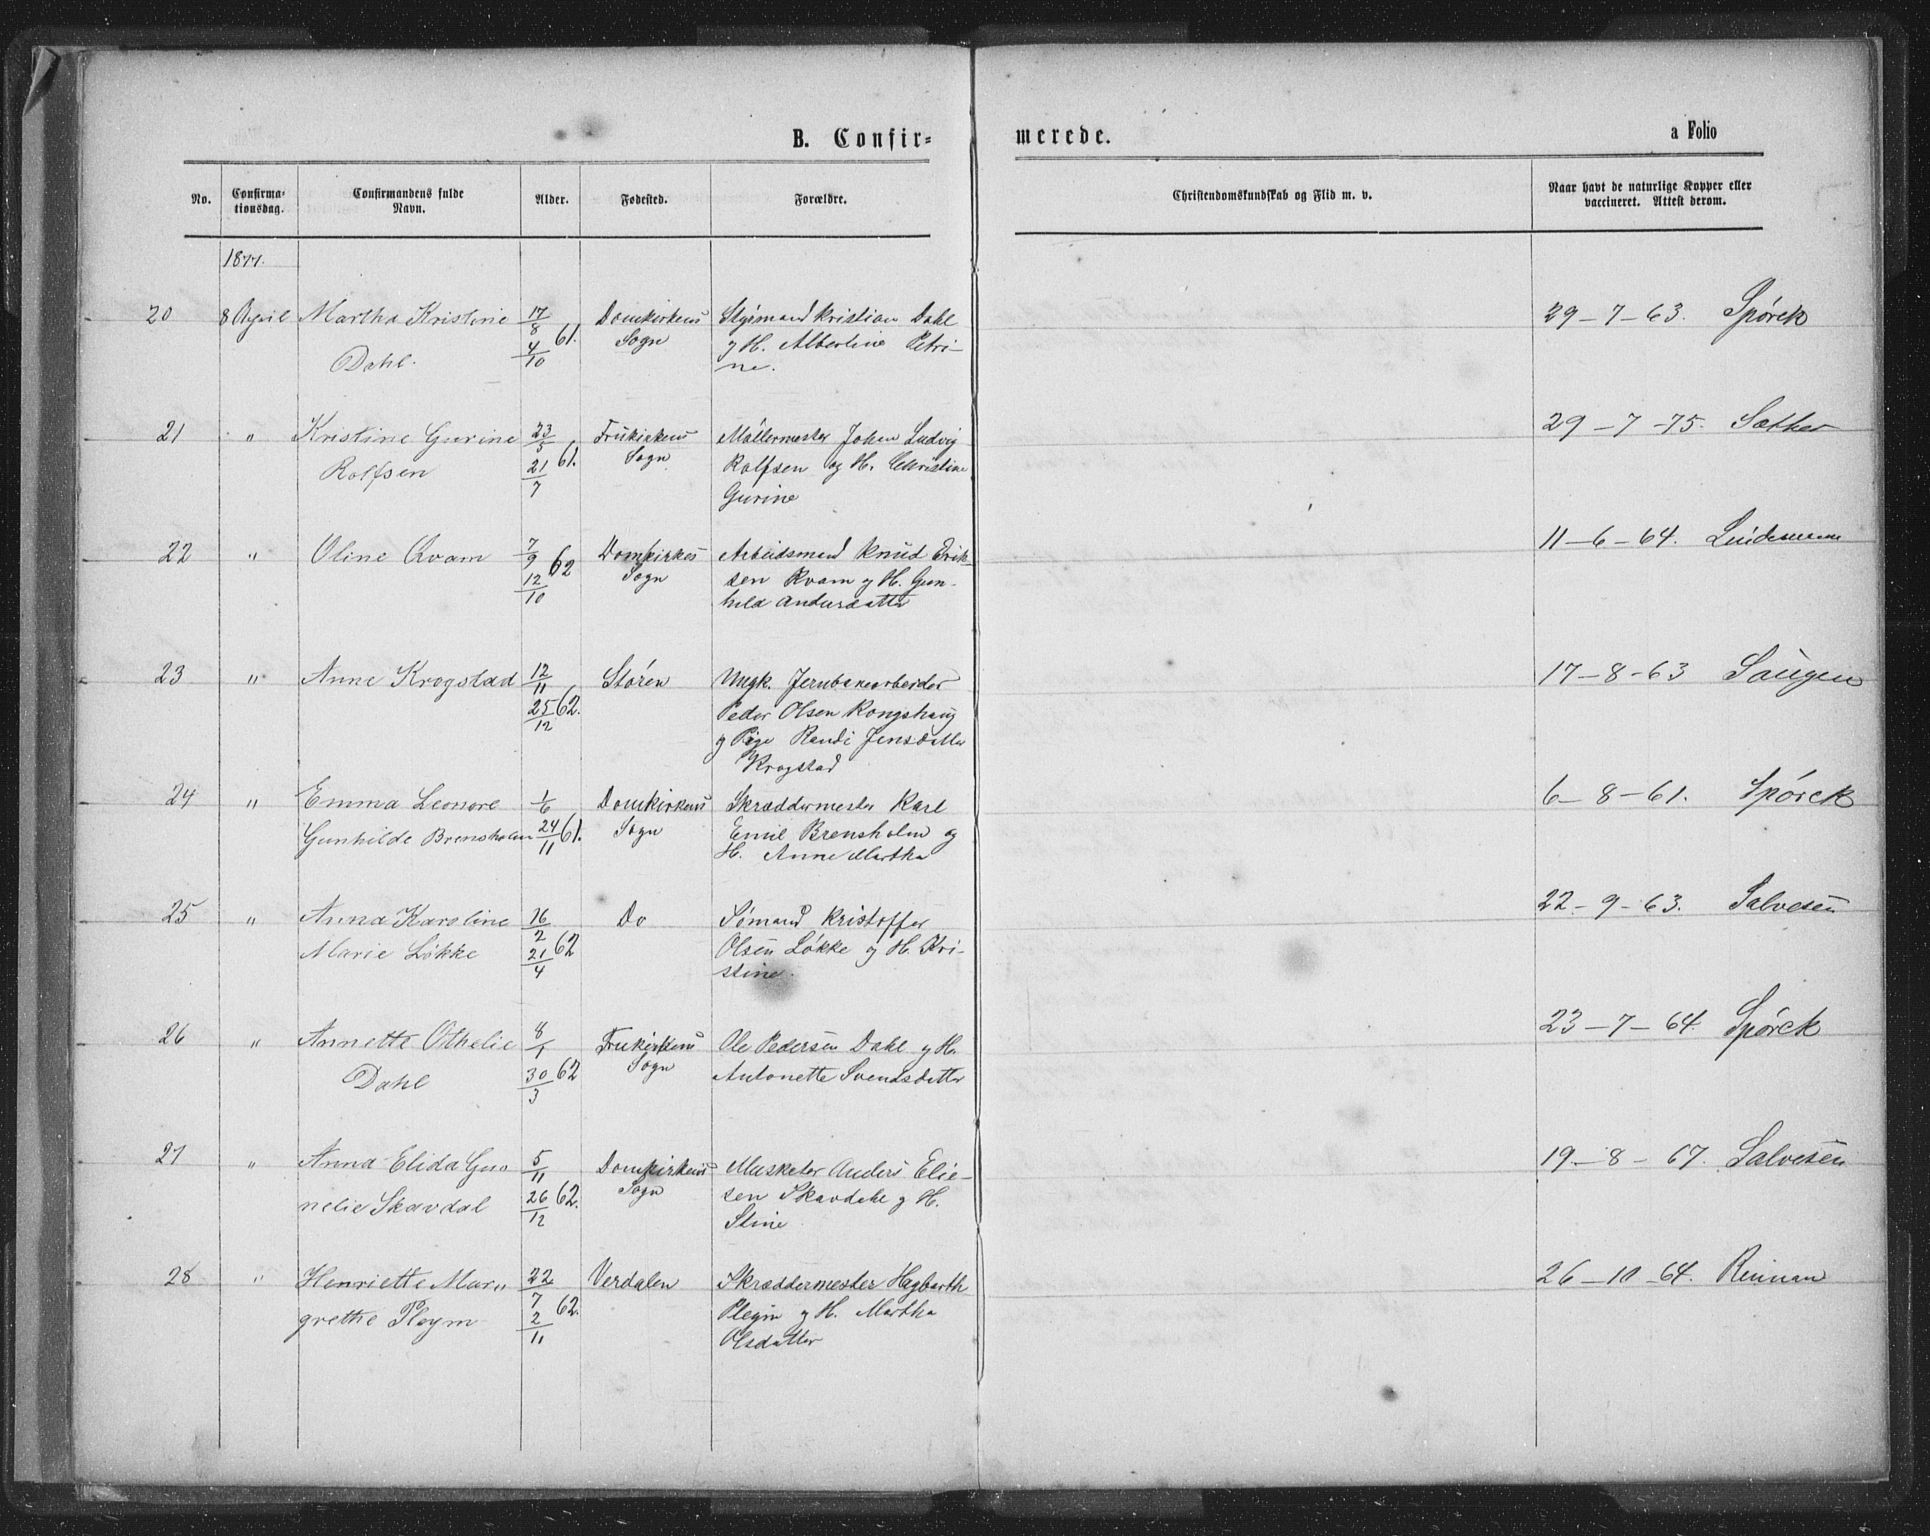 B. Confir=
merede.
a Folio
No.
Confirma-
tionsdag.
Confirmandens fulde
Navn.
Alder.
Fødested.
Forældre.
Christendomskundskab og Flid m. v.
Naar havt de naturlige Kopper eller
vaccineret. Attest derom.
1877.
20 8 April Martha Kristine 17/8 61. 4/10 Domkirkens Styrmand Kristian Dahl 29-7-63. Spørck
Dahl. Sogn og H. Albertine Petri-
ne.
21 " Kristine Gurine 23/5 61. 21/7 Frukirkens Møllermester Johan Ludvig 29-7-75. Sæther
Rolfsen Sogn Rolfsen og H. Christine
Gurine
22 " Oline Qvam 7/9 62 12/10 Domkirkes Arbeidsmand Knud Erik- 11-6-64. Lindemann
Sogn sen Kvam og H. Gun-
hild Andersdatter
23 " Anne Krogstad 12/11 62. 25/12 Støren Ungk. Jernbanearbeider 17-8-63 Saugen
Peder Olsen Kongshaug
og Pige Randi Jensdatter
Krogstad
24 " Emma Leonore 1/6 61. 24/11 Domkirkens Skræddermester Karl 6-8-61. Spørck
Gunhilde Brensholm Sogn Emil Brensholm og
H. Anne Martha
25 " Anna Karoline 16/2 62 21/4 Do Sømand Kristoffer 22-9-63. Salvesen
Marie Løkke Olsen Løkke og H. Kri-
stine.
26 " Annette Othelie 8/1 62 30/3 Frukirkens Ole Pedersen Dahl og H. 23-7-64. Spørck
Dahl Sogn Antonette Svendsdatter
27 " Anna Elida Gu- 5/11 62. 26/12 Domkirkens Musketer Anders Elie- 19-8-67. Salvesen
nelie Skavdal Sogn sen Skavdahl og H.
Stine
28 " Henriette Mar- 22/7 62. 2/11 Verdalen Skræddermester Hagbarth 26-10-64. Rennan
grethe Pleym Pleym og H. Martha
Olsdatter